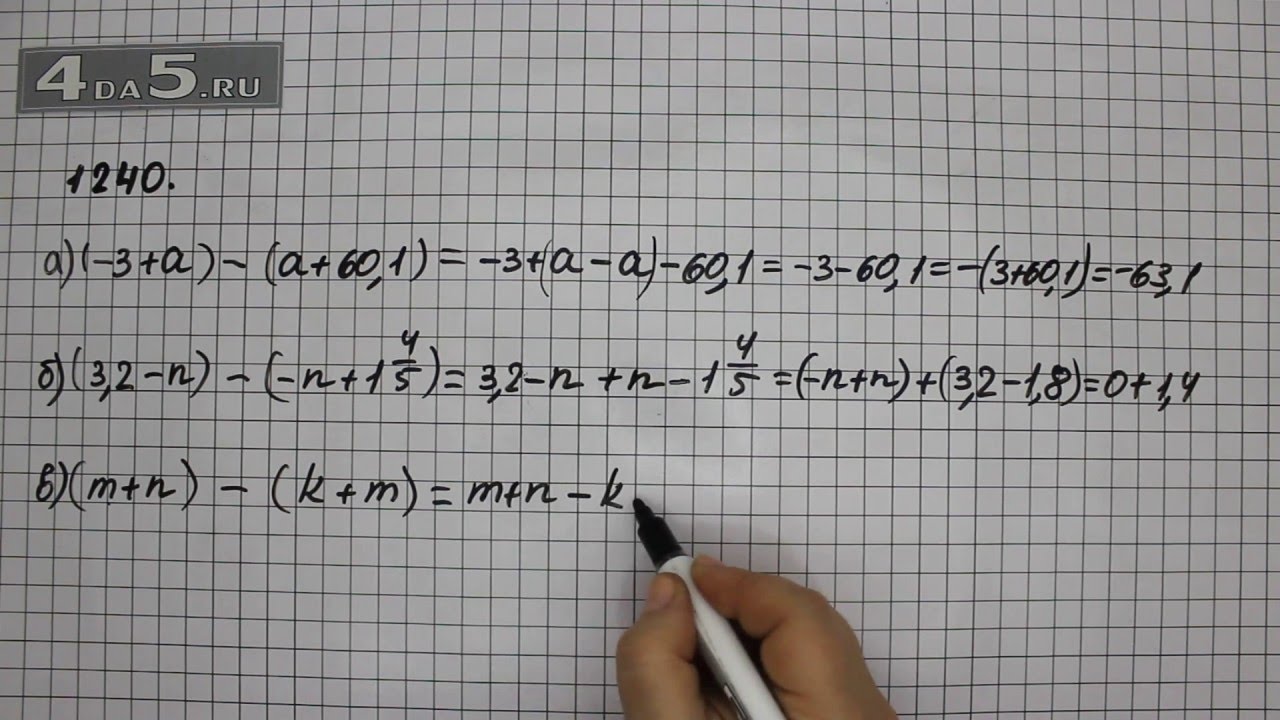 4DA5.RU
1240.
а)(-3+a)-(a+60,1)=-3+(a-a)-60,1=-3-60,1=-(3+60,1)=-63,1
б)(3,2-n)-(-n+1 4/5)=3,2-n+n-1 4/5=(-n+n)+(3,2-1,8)=0+1,4
в)(m+n)-(k+m)=m+n-k